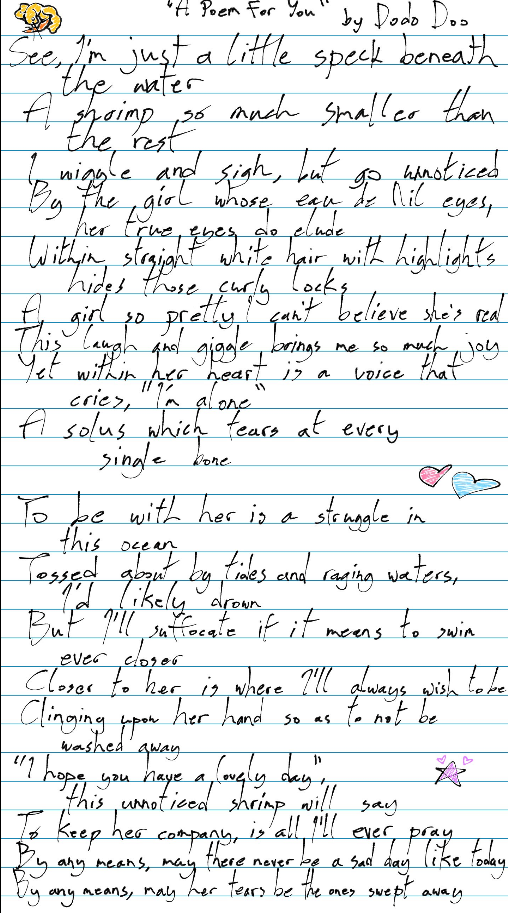 "A Poem For You" by Dodo Doo
See, I'm just a little speck beneath
the water
A shrimp so much smaller than
the rest
I wiggle and sigh, but go unnoticed
By the girl whose eau de Nil eyes,
her true eyes do elude
Within straight white hair with highlights
hides those curly locks
A girl so pretty I can't believe she's real
This laugh and giggle brings me so much joy
Yet within her heart is a voice that
cries, "I'm alone"
A solus which tears at every
single bone
To be with her is a struggle in
this ocean
Tossed about by tides and raging waters,
I'd likely drown
But I'll suffocate if it means to swim
ever closer
Closer to her is where I'll always wish to be
Clinging upon her hand so as to not be
washed away
"I hope you have a lovely day",
this unnoticed shrimp will say
To keep her company, is all I'll ever pray
By any means, may there never be a sad day like today
By any means, may her tears be the ones swept away